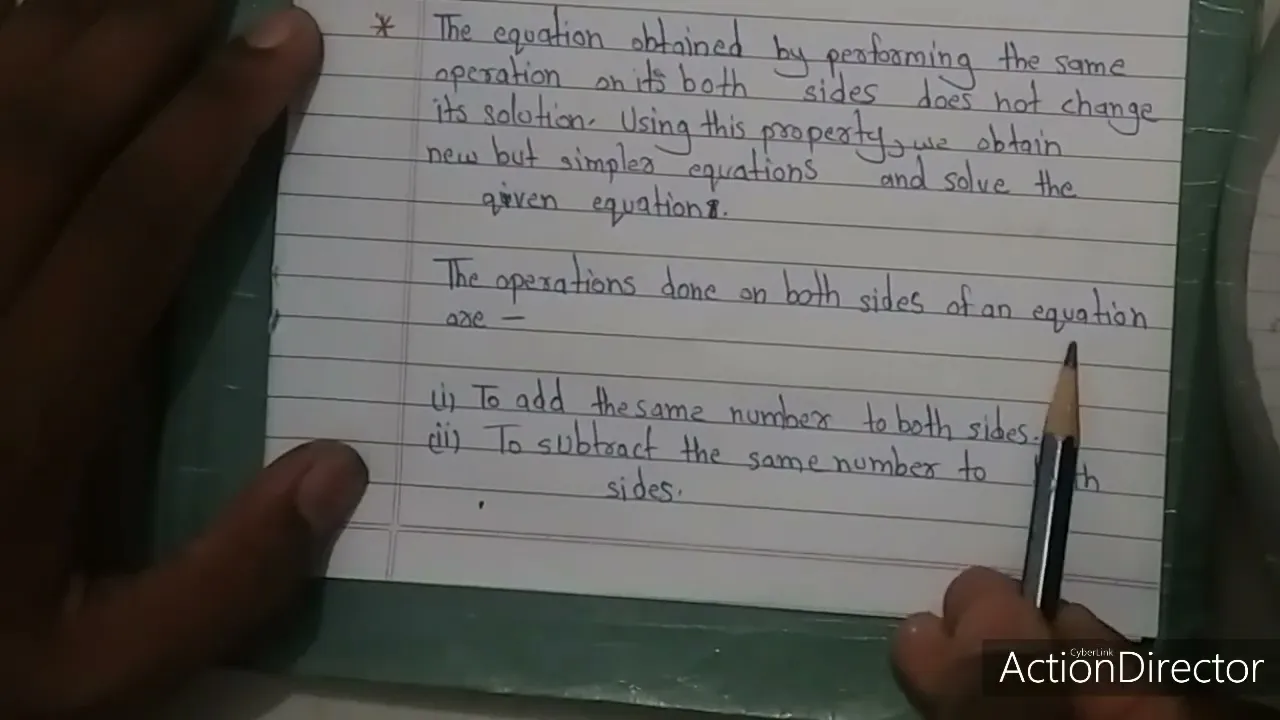 * The equation obtained by performing the same
operation on its both sides does not change
its solution. Using this property, we obtain
new but simpler equations and solve the
given equations.
The operations done on both sides of an equation
are -
(i) To add the same number to both sides.
(ii) To subtract the same number to
sides.
CyberLink
ActionDirector